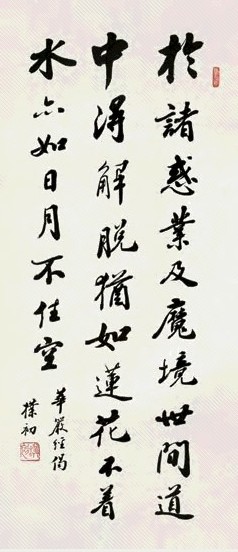 於諸惑業及魔境世間道
中得解脱猶如蓮花不着
水亦如日月不住空
華嚴經偈
樸初